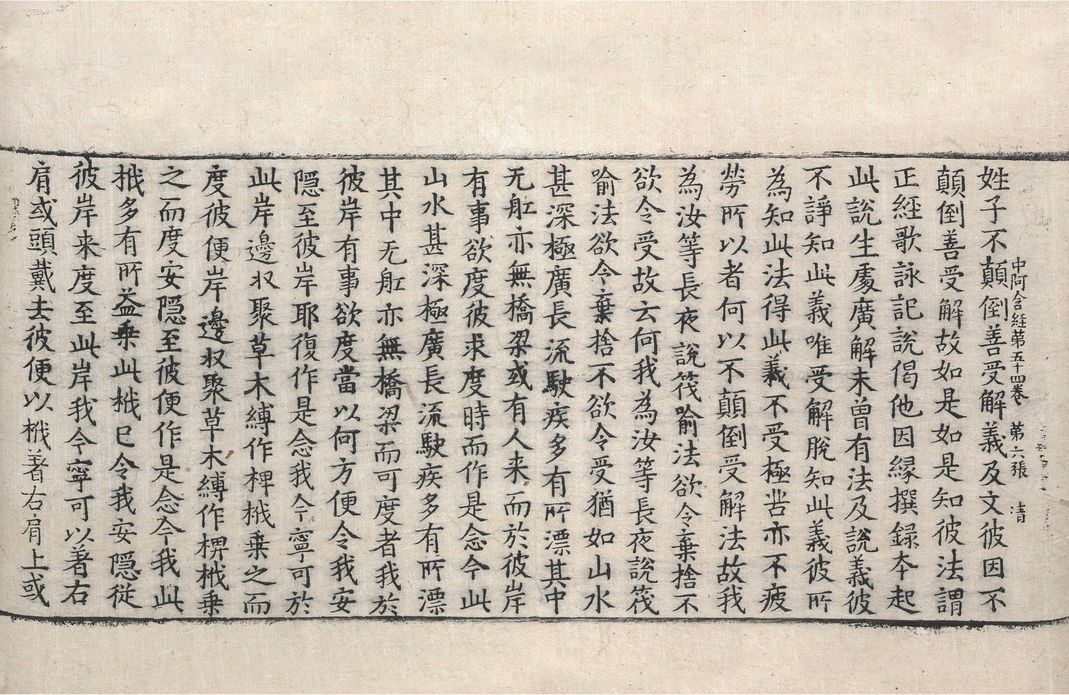 中阿含経第五十四卷 第六張 清
姓子不顛倒善受解義及文彼因不
顛倒善受解故如是如是知彼法謂
正經歌詠記說偈他因縁撰録夲起
此說生處廣解未曾有法及說義彼
不諍知此義唯受解脫知此義彼所
為知此法得此義不受極苦亦不疲
勞所以者何以不顛倒受解法故我
為汝等長夜說筏喻法欲令棄捨不
欲令受故云何我為汝等長夜說筏
喻法欲令棄捨不欲令受猶如山水
甚深極廣長流駛疾多有所漂其中
无舡亦無橋梁或有人来而於彼岸
有事欲度彼求度時而作是念今此
山水甚深極廣長流駛疾多有所漂
其中无舡亦無橋梁而可度者我於
彼岸有事欲度當以何方便令我安
隱至彼岸耶復作是念我今寧可於
此岸邊収聚草木縛作椑栰乗之而
度彼便岸邊収聚草木縛作椑栰乗
之而度安隱至彼便作是念今我此
栰多有所益乗此栰已令我安隱従
彼岸来度至此岸我今寧可以著右
肩或頭戴去彼便以栰著右肩上或